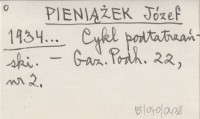 PIENIĄŻEK Józef
1934... Cykl podtatrzań-
ski. – Gaz. Podh. 22,
nr 2.